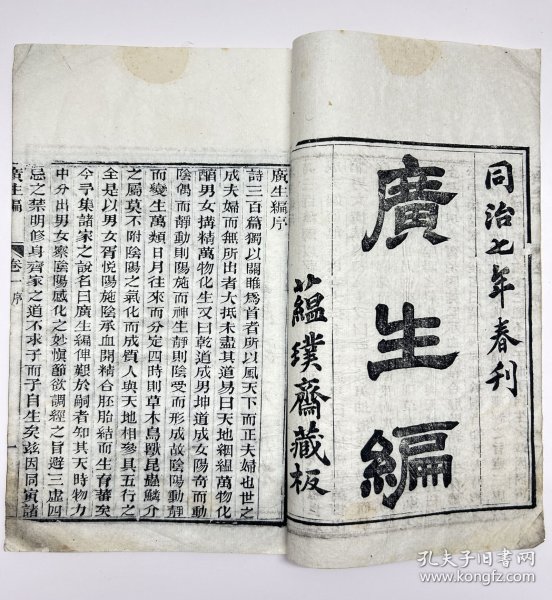 同治七年春刊
廣生編
蘊璞齋藏板
廣生編序
詩三百篇獨以關雎爲首者所以風天下而正夫婦也世之
成夫婦而無所出者大抵未盡其道易曰天地絪縕萬物化
醕男女搆精萬物化生又曰乾道成男坤道成女陽奇而動
陰偶而靜動則陽施而神生靜則陰受而形成故陰陽動靜
而變生萬類日月往來而分定四時則草木鳥獸昆蟲鱗介
之屬莫不附陰陽之氣化而成質人與天地相參具五行之
全是以男女胥悅陽施陰承血開精合胚胎結而生育蕃矣
今予集諸家之說名曰廣生編俾艱於嗣者知其天時物力
中分出男女察陰陽感化之妙慎節欲調經之旨避三虛四
忌之禁明修身齊家之道不求子而子自生矣兹因同寅諸
廣生編
卷一序
一
孔夫子旧书网
www.kongfz.com